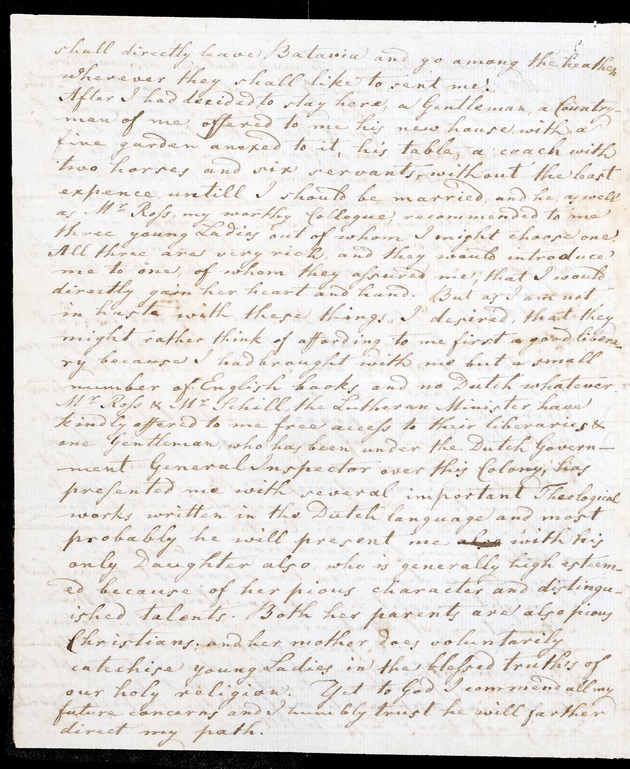 shall directly leave Batavia and go among the heathen
wherever they shall like to sent me!
After I had decided to stay here, a Gentleman, a Country-
man of me offered to me his new house with a
fine garden anexed to it, his table, a coach with
two horses and six servants, without the least
expence, untill I should be married, and he, as well
as Mr Ross, my worthy Collogue, recommended to me
three young Ladies out of whom I might choose one!
All three are very rich, and they would introduce
me to one, of whom they assured me, that I would
directly gain her heart and hand. But as I am not
in haste with these things, I desired, that they
might rather think of affording to me first a good libera-
ry because I had brought with me but a small
number of English books and no Dutch whatever.
Mr Ross & Mr Schill the Lutheran Minister, have
kindly offered to me free access to their liberaries &
one Gentleman, who has been under the Dutch Govern-
ment General Inspector over this Colony, has
presented me with several important Theological
works written in the Dutch language and most
probably he will present me also with his
only Daughter also, who is generally high esteem-
ed because of her pious character and distingu-
ished talents. Both her parents are also pious
Christians, and her mother does voluntarily
catechise young Ladies in the blessed truths of
our holy religion. Yet to God I commend all my
future concerns and I humbly trust he will farther
direct my path.